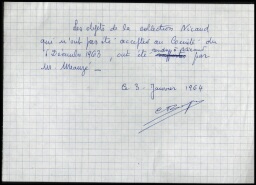 Les objets de la collection Nicaud
qui n'ont pas été acceptés au Comité du
5 Décembre 1963, ont été par
les Musées _
le 3 - Janvier 1964